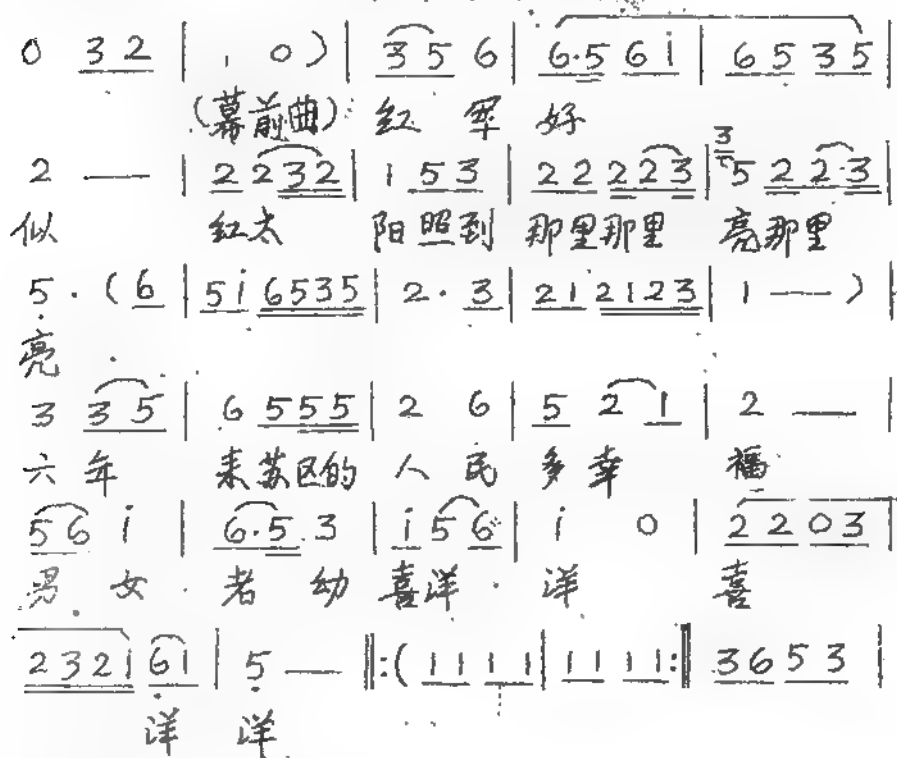 0 3 2 | 1 0 ) | 3 5 6 | 6·5 6 i | 6 5 3 5 |
(幕前曲) 红 军 好
2 — | 2 2 3 2 | 1 5 3 | 2 2 2 2 3 | 5 2 2·3 |
似 红太 阳照到 那里那里 亮那里
5 · ( 6 | 5 i 6 5 3 5 | 2 · 3 | 2 1 2 1 2 3 | 1 — ) |
亮
3 3 5 | 6 5 5 5 | 2 6 | 5 2 1 | 2 — |
六 年 来苏区的 人 民 多 幸 福
5 6 i | 6·5 3 | i 5 6 | i 0 | 2 2 0 3 |
男 女 老 幼 喜洋 洋 喜
2 3 2 i 6 1 | 5 — ‖: ( 1 1 1 1 | 1 1 1 1 :‖ 3 6 5 3 |
洋 洋